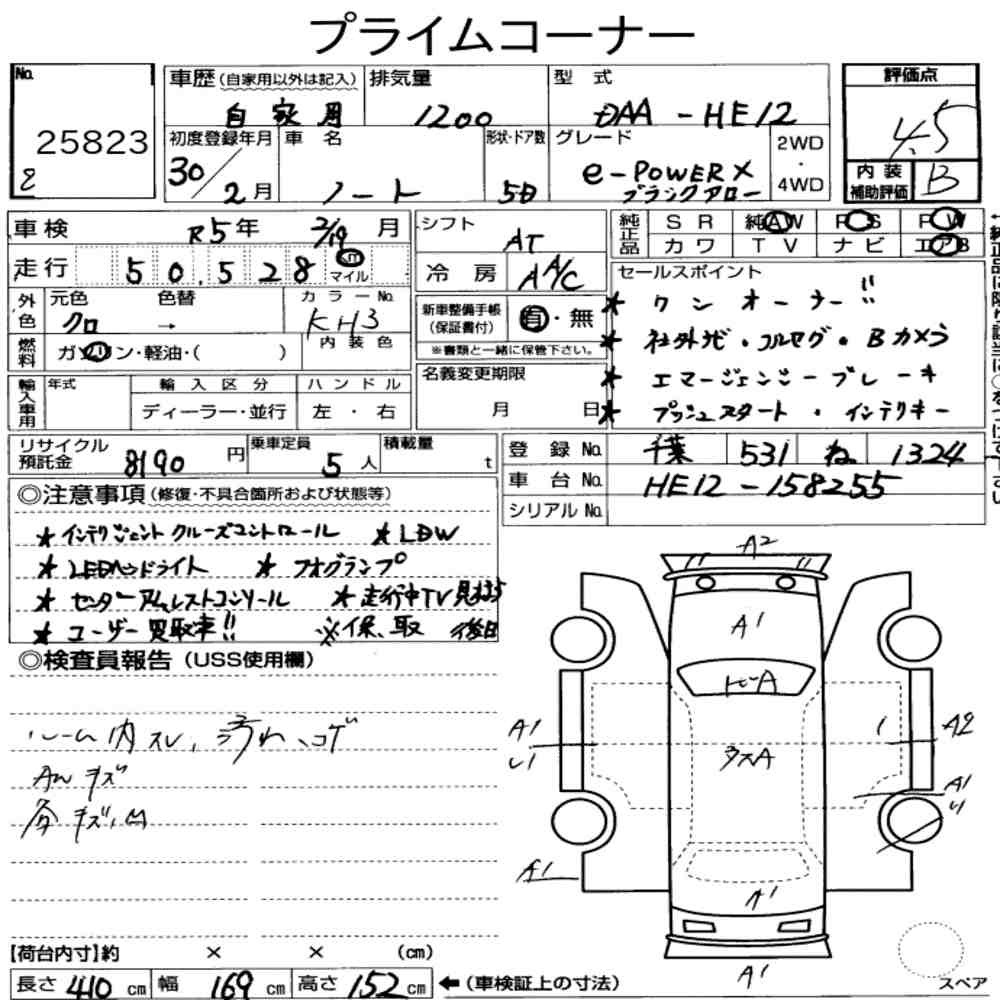 プライムコーナー
No.
25823
車歴 (自家用以外は記入)
自家用
排気量
1200
型式
DAA-HE12
評価点
4.5
初度登録年月
30/2月
車名
ノート
形状・ドア数
5D
グレード
e-POWER X
ブラックアロー
2WD
・
4WD
内装
補助評価
B
車検
R5年 2/19 月
シフト
AT
純正品
SR 純AW PS PW
カワ TV ナビ エアB
走行
50,528
Km
マイル
冷房
A A/C
セールスポイント
★ ワンオーナー!!
★ 社外ナビ・フルセグ・Bカメラ
★ エマージェンシーブレーキ
★ プッシュスタート・インテリキー
外色
元色
クロ
色替
→
カラーNo.
KH3
内装色
新車整備手帳
(保証書付)
有・無
※書類と一緒に保管下さい。
燃料
ガソリン・軽油・( )
名義変更期限
月 日
輸入車用
年式
輸入区分
ディーラー・並行
ハンドル
左・右
リサイクル
預託金
8190 円
乗車定員
5 人
積載量
t
登録No.
千葉 531 ね 1324
車台No.
HE12-158255
シリアルNo.
◎注意事項 (修復・不具合箇所および状態等)
★インテリジェントクルーズコントロール ★LDW
★LEDヘッドライト ★フォグランプ
★センターアームレストコンソール ★走行中TV見れます
★ユーザー買取車!! ※保、取 後日
◎検査員報告 (USS使用欄)
ルーム内スレ、汚れ、コゲ
AWキズ
各キズ、凹
A2
A1
トビーA
A1
A2
A1
A1
A1
A1
スペア
【荷台内寸】約 × × (cm)
長さ 410 cm 幅 169 cm 高さ 152 cm ←(車検証上の寸法)